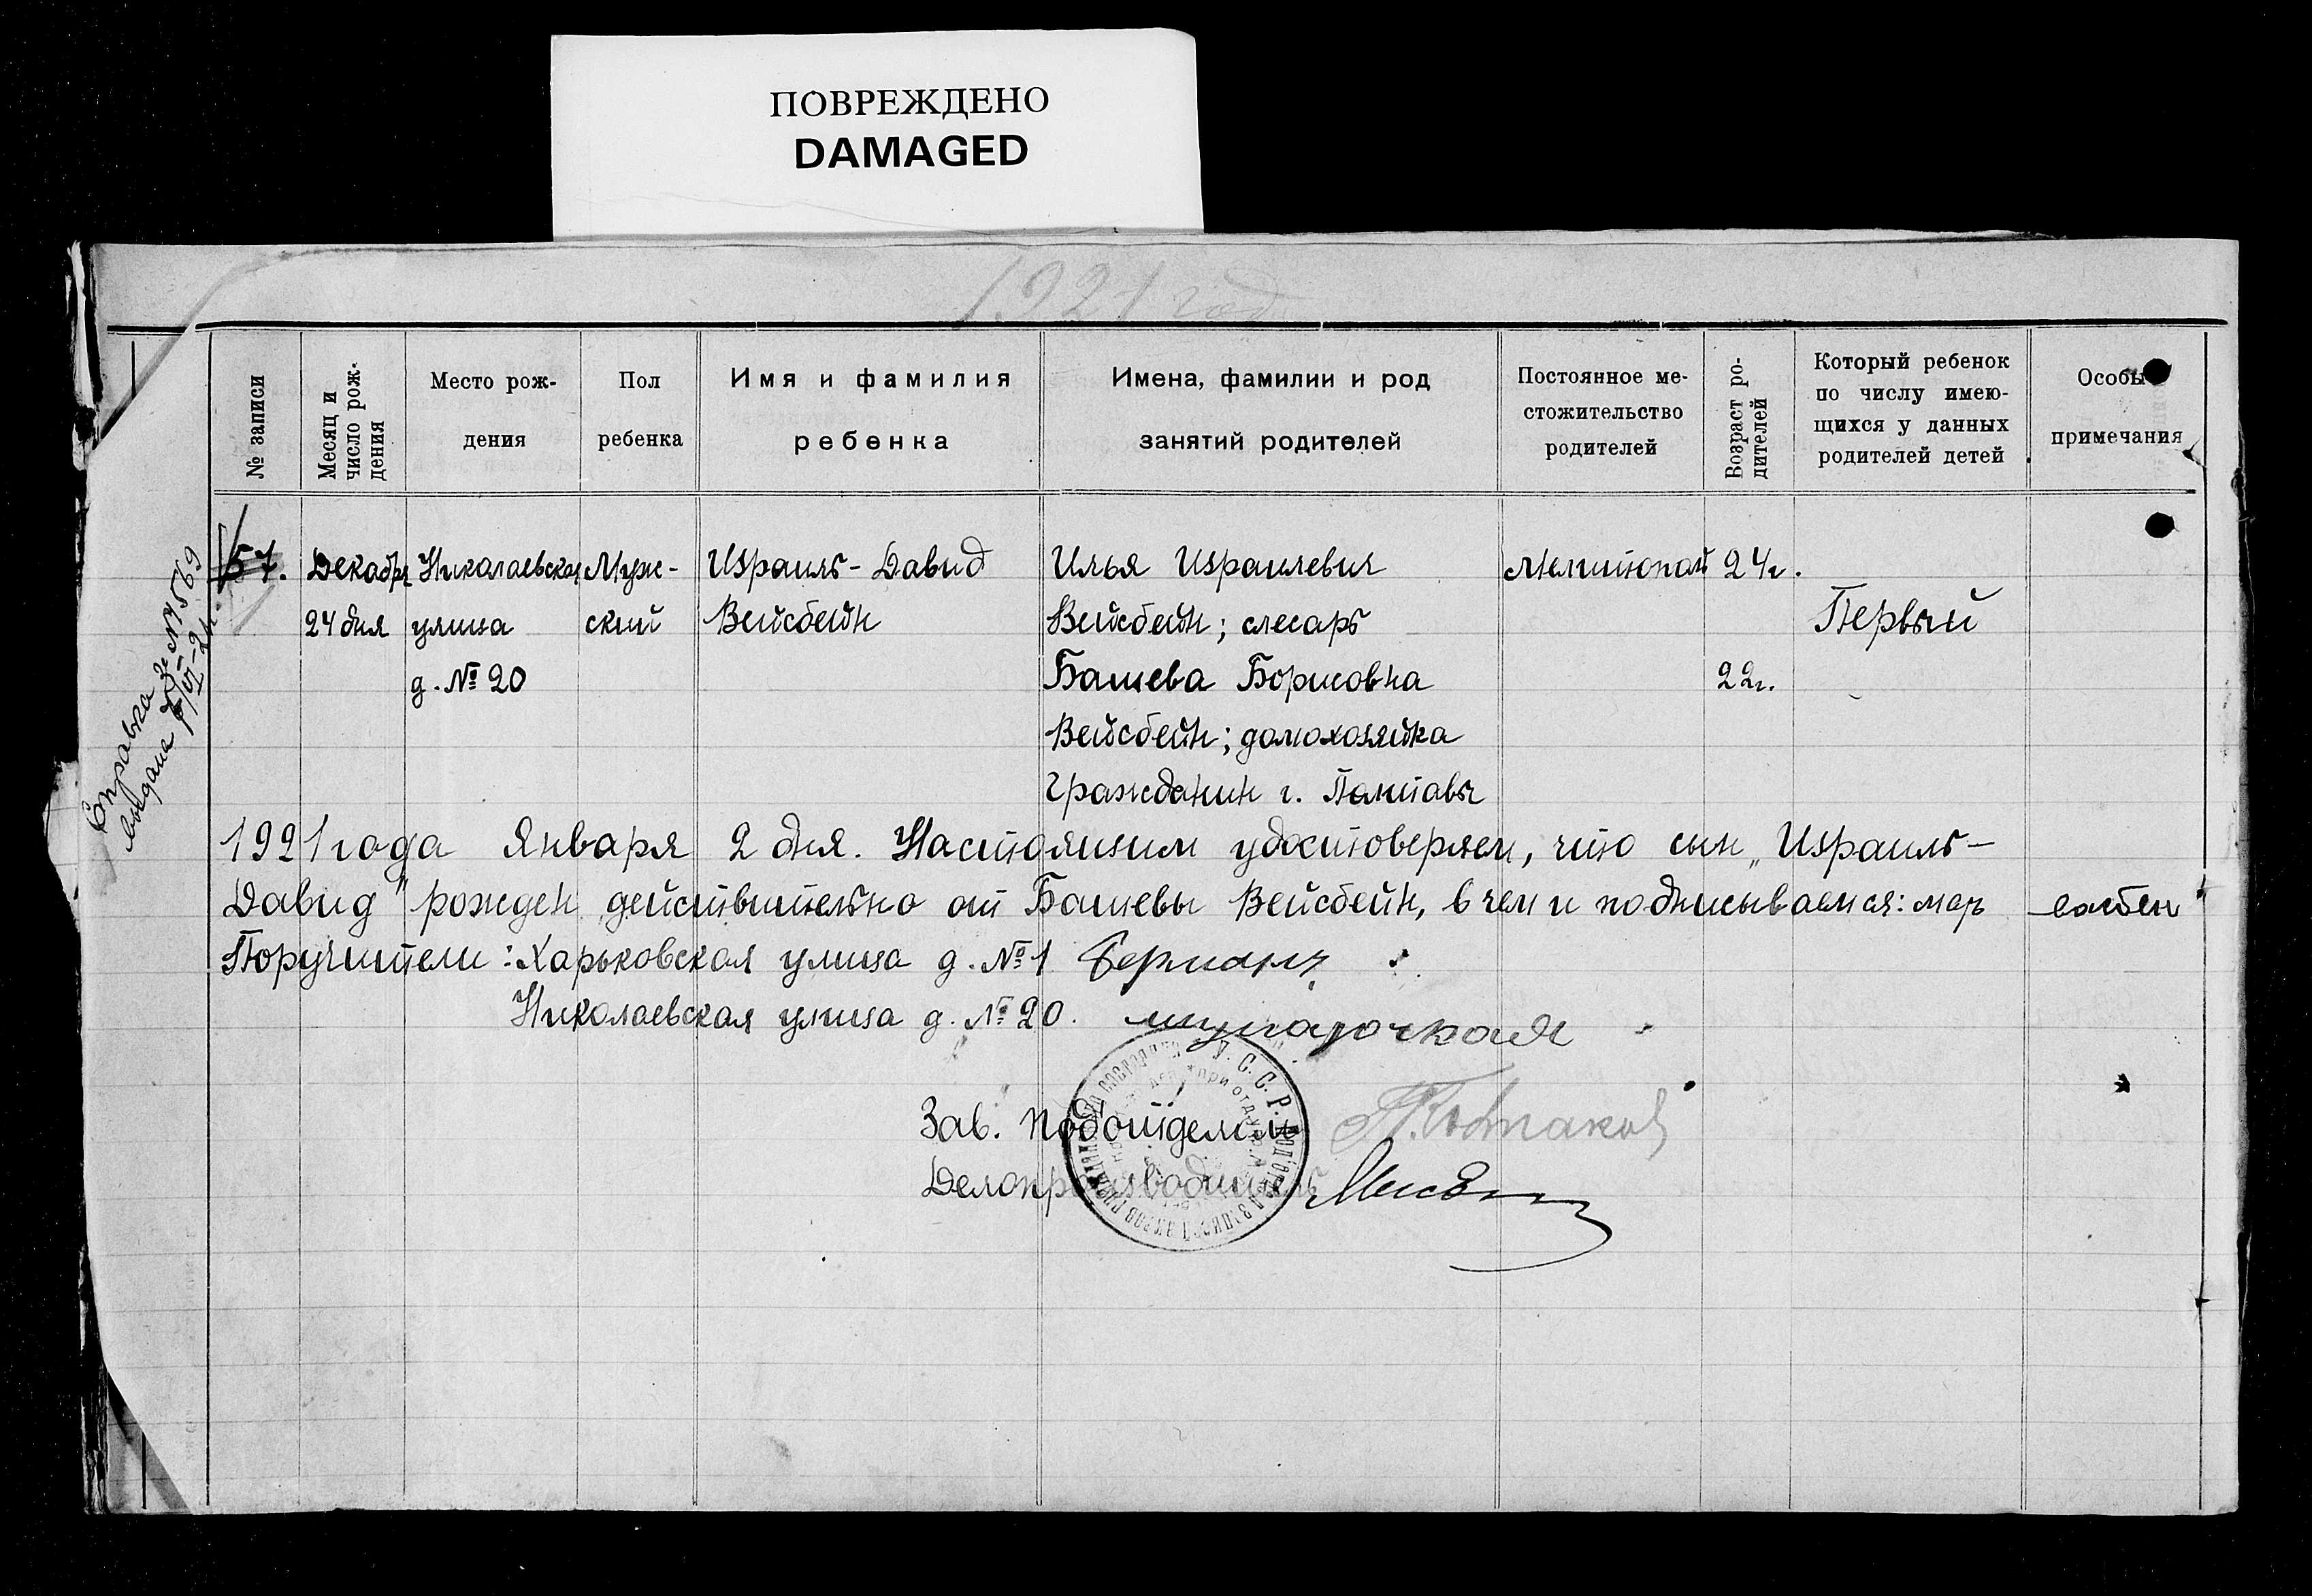 ПОВРЕЖДЕНО
DAMAGED
1921 год
№ записи
Месяц и
число рож-
дения
Место рож-
дения
Пол
ребенка
Имя и фамилия
ребенка
Имена, фамилии и род
занятий родителей
Постоянное ме-
стожительство
родителей
Возраст ро-
дителей
Который ребенок
по числу имею-
щихся у данных
родителей детей
Особы
примечания
57.
Декабря
24 дня
Николаевская
улица
д. № 20
Муж-
ский
Израиль-Давид
Вейсбейн
Илья Израилевич
Вейсбейн; слесарь
Башева Борисовна
Вейсбейн; домохозяйка
Гражданин г. Полтавы
Мелитополь
24 г.
22 г.
Первый
Справка за № 569
выдана
1921 года Января 2 дня. Настоящим удостоверяем, что сын „Израиль-
Давид" рожден действительно от Башевы Вейсбейн, в чем и подписываемся:
Поручители: Харьковская улица д. № 1 Берман
Николаевская улица д. № 20.
У.С.С.Р.
Зав. Подотделом
Делопроизводитель